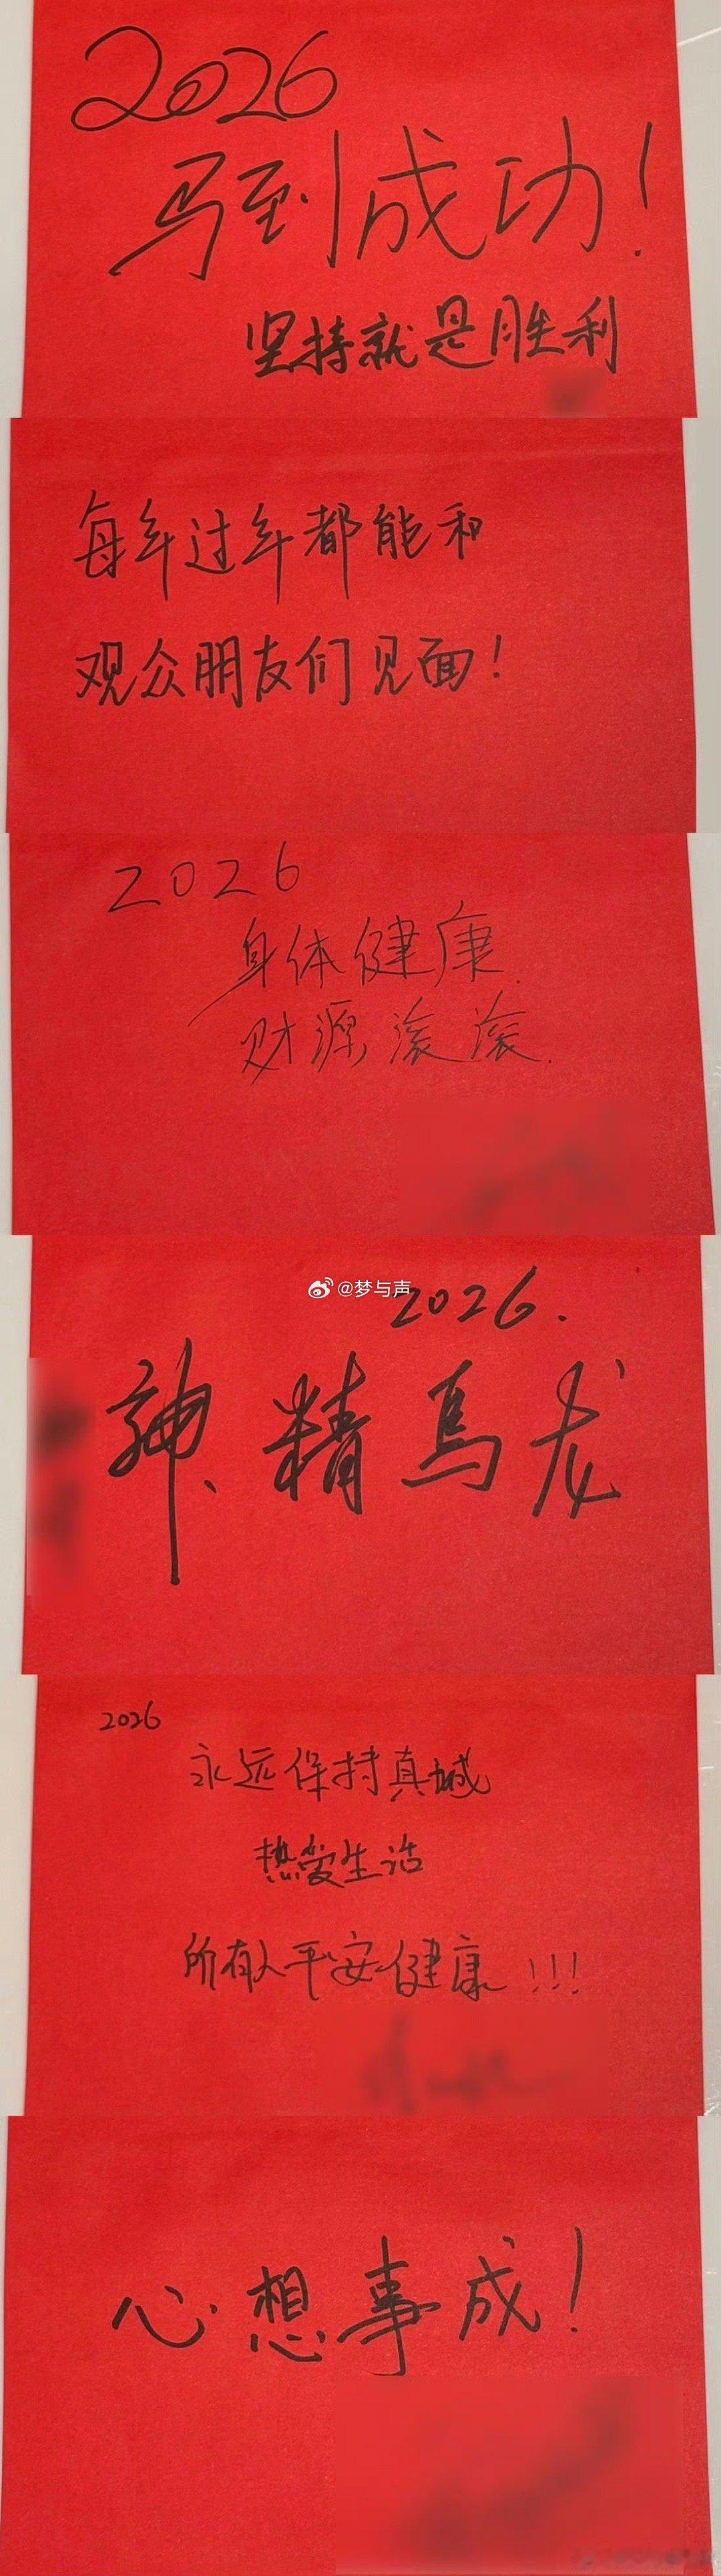 2026
马到成功!
坚持就是胜利
每年过年都能和
观众朋友们见面!
2026
身体健康.
财源滚滚.
@梦与声
2026.
神精馬龙
2026
永远保持真诚
热爱生活
所有人平安健康!!!
心想事成!